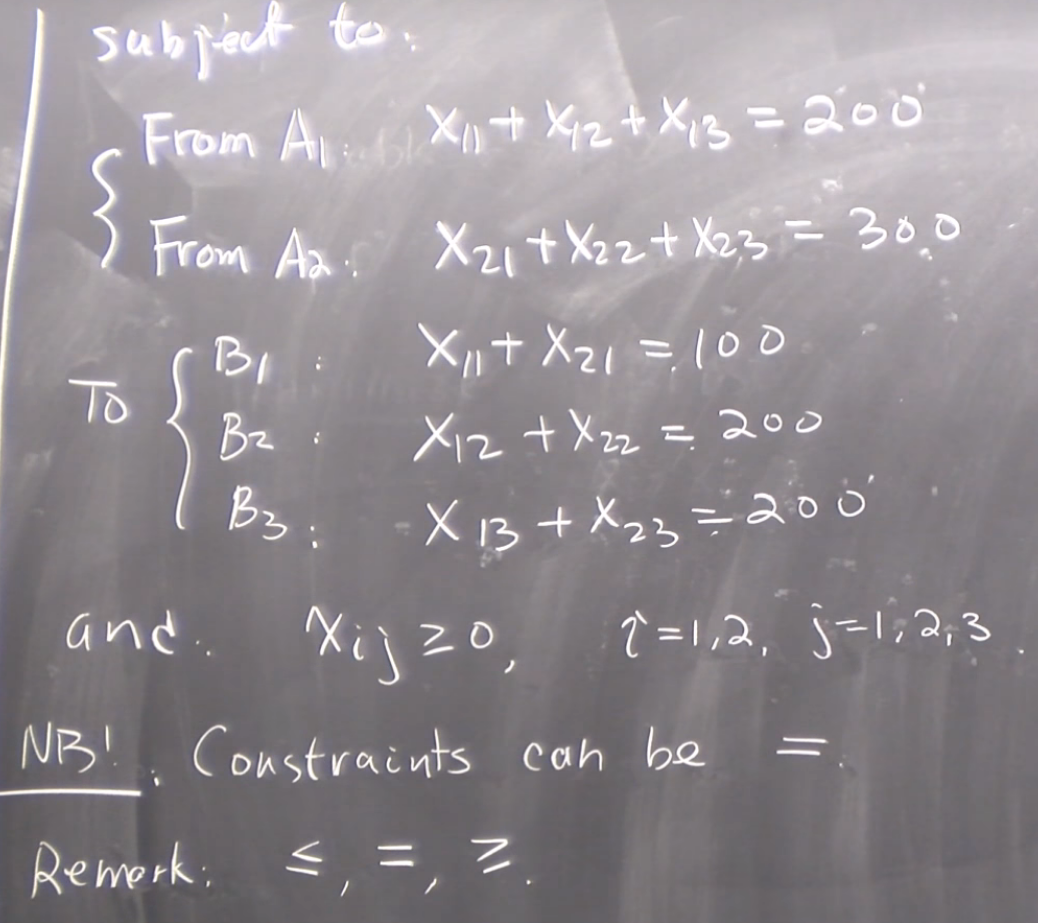 subject to:
From A1: X11 + X12 + X13 = 200
From A2: X21 + X22 + X23 = 300
B1 : X11 + X21 = 100
To { B2 : X12 + X22 = 200
B3 : X13 + X23 = 200
and. Xij ≥ 0, i=1,2, j=1,2,3.
NB! Constraints can be =.
Remark: ≤, =, ≥.